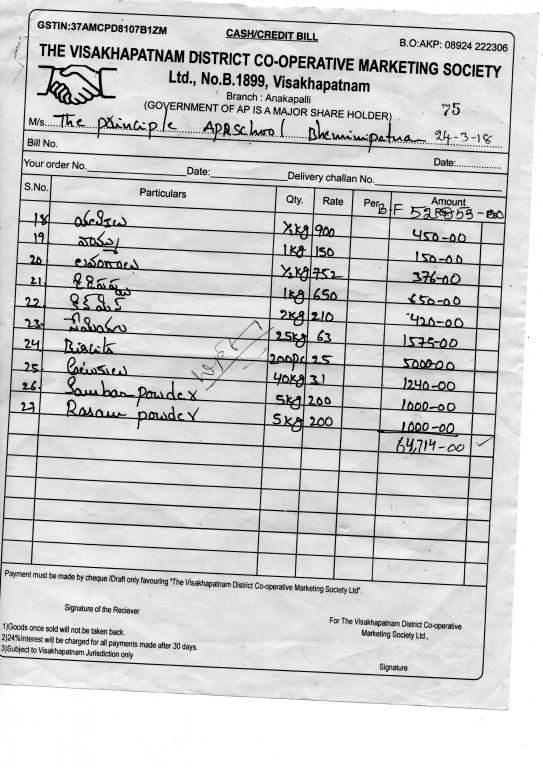 GSTIN:37AMCPD8107B1ZM
CASH/CREDIT BILL
B.O:AKP: 08924 222306
THE VISAKHAPATNAM DISTRICT CO-OPERATIVE MARKETING SOCIETY
Ltd., No.B.1899, Visakhapatnam
Branch : Anakapalli
(GOVERNMENT OF AP IS A MAJOR SHARE HOLDER)
75
M/s. The principle APRSchool Bheminipatna 24-3-18
Bill No. Date:
Your order No. Date: Delivery challan No.
S.No. Particulars Qty. Rate Per Amount
B-F
18 ½kg 900 450-00
19 వాము 1kg 150 150-00
20 లవంగాలు ½kg 752 376-00
21 1kg 650 650-00
22 2kg 210 420-00
23 సేమియా 25kg 63 1575-00
24 Biscits 200Pc 25 5000-00
25 40kg 31 1240-00
26 Sambar powder 5kg 200 1000-00
27 Rasam powder 5kg 200 1000-00
64,714-00
Payment must be made by cheque /Draft only favouring "The Visakhapatnam District Co-operative Marketing Society Ltd".
Signature of the Reciever
For The Visakhapatnam District Co-operative
Marketing Society Ltd.,
1)Goods once sold will not be taken back.
2)24%Interest will be charged for all payments made after 30 days.
3)Subject to Visakhapatnam Jurisdiction only
Signature